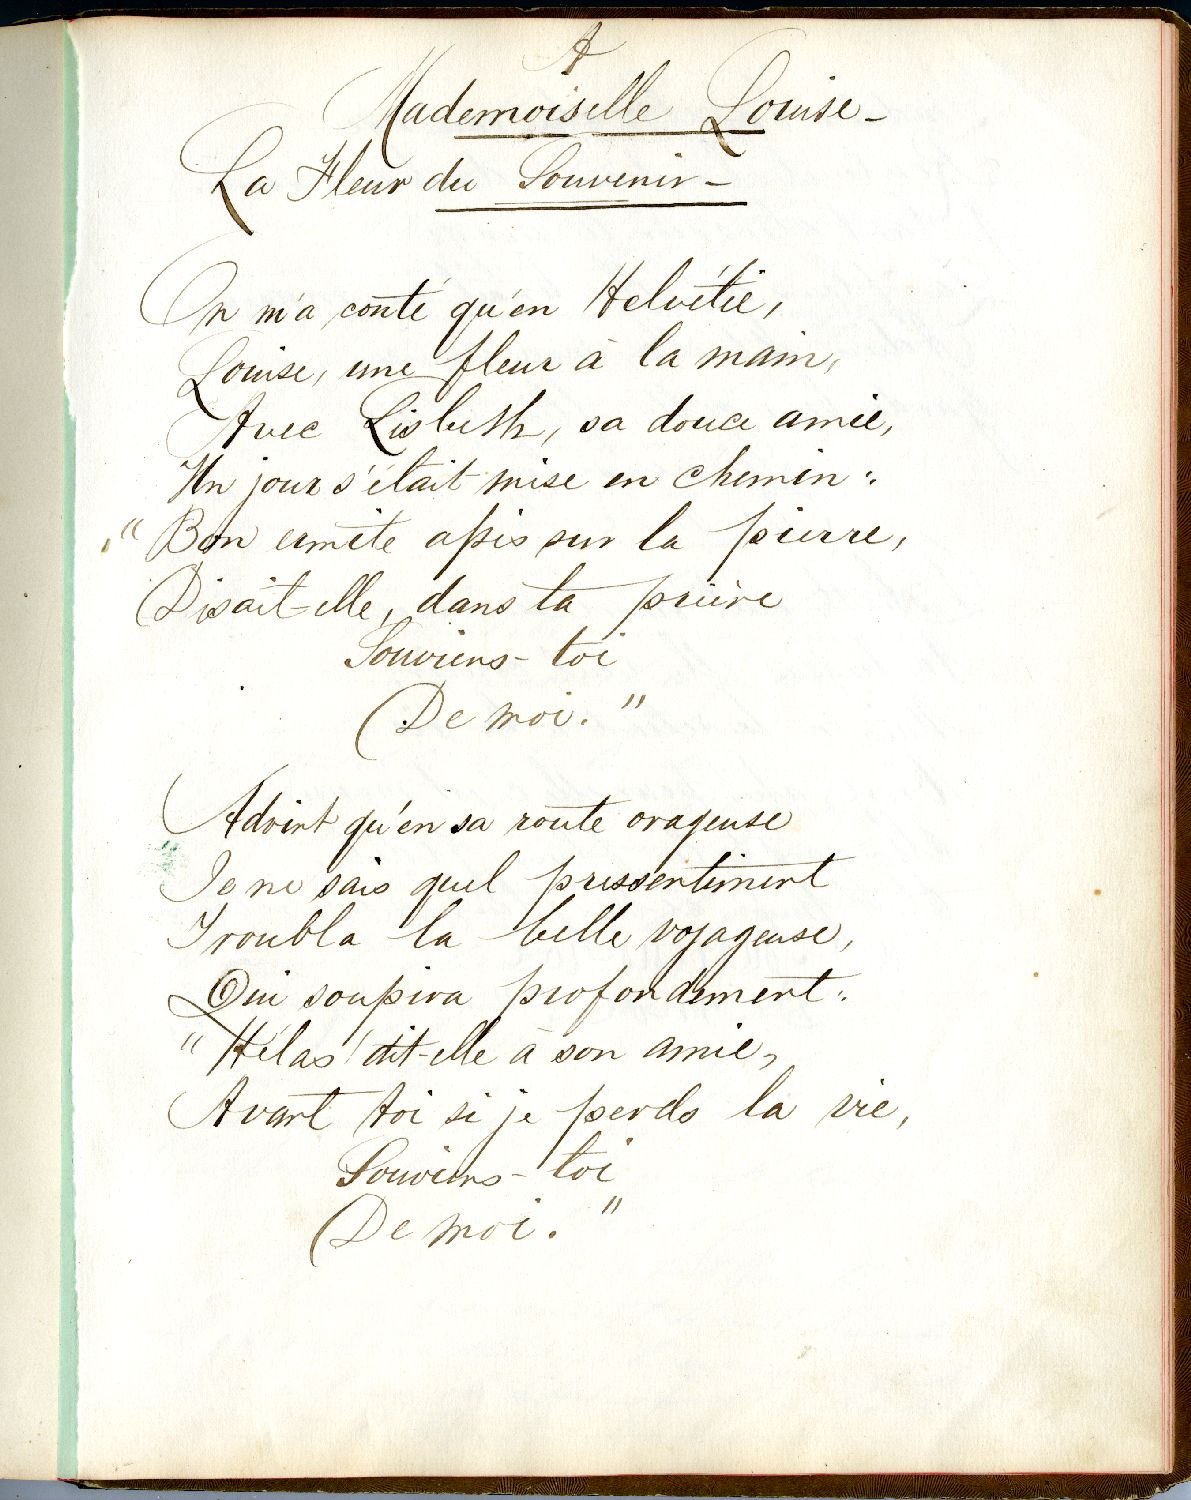 A
Mademoiselle Louise -
La Fleur du Souvenir -
On m'a conté qu'en Helvétie,
Louise, une fleur à la main,
Avec Lisbeth, sa douce amie,
Un jour s'était mise en chemin :
"Bon ermite assis sur la pierre,
Disait-elle, dans ta prière
Souviens-toi
De moi."
Advint qu'en sa route orageuse
Je ne sais quel pressentiment
Troubla la belle voyageuse,
Qui soupira profondément :
"Hélas ! dit-elle à son amie,
Avant toi si je perds la vie,
Souviens-toi
De moi."